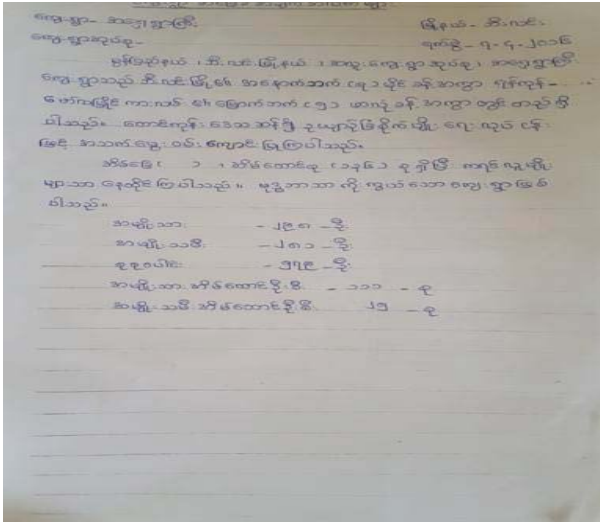 ကျေးရွာ - အရှေ့ရွာကြီး မြို့နယ် - ဘီးလင်း
ကျေးရွာအုပ်စု - ရက်စွဲ - ၇ - ၄ - ၂၀၁၆
မွန်ပြည်နယ် ၊ ဘီးလင်းမြို့နယ် ၊ ကျေးရွာအုပ်စု ၊ အရှေ့ရွာကြီး
ကျေးရွာသည် ဘီးလင်းမြို့၏ အနောက်ဘက် မိုင်ခန့်အကွာ ရန်ကုန် -
ကားလမ်း ၏ မြောက်ဘက် ခန့် အကွာ တွင် တည်ရှိ
ပါသည်။ တောင်ကုန်း ဒေသ စိုက်ပျိုး ရေး လုပ် ငန်း
ဖြင့် အသက်မွေး ဝမ်း ကျောင်း ပြုကြပါသည်။
အိမ်ခြေ ၊ အိမ်ထောင်စု စု ရှိပြီး ကရင် လူမျိုး
များသာ နေထိုင်ကြပါသည်။ ဗုဒ္ဓဘာသာ ကို ကွယ်သော ကျေးရွာ ဖြစ်
ပါသည်။
အမျိုးသား - ၂၉၈ - ဦး
အမျိုးသမီး - ၂၈၁ - ဦး
စုစုပေါင်း - ၅၇၉ - ဦး
အမျိုးသား အိမ်ထောင်ဦးစီး - ၁၁၁ - စု
အမျိုးသမီး အိမ်ထောင်ဦးစီး ၂၅ - စု